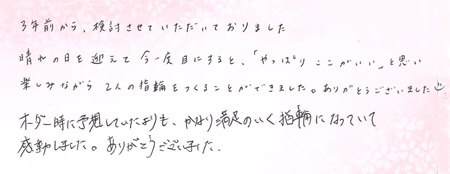 3年前から、検討させていただいておりました
晴れの日を迎えて今一度目にすると、「やっぱりここがいい」と思い
楽しみながら2人の指輪をつくることができました。ありがとうございました
オーダー時に予想していたよりも、かなり満足のいく指輪になっていて
感動しました。ありがとうございました。